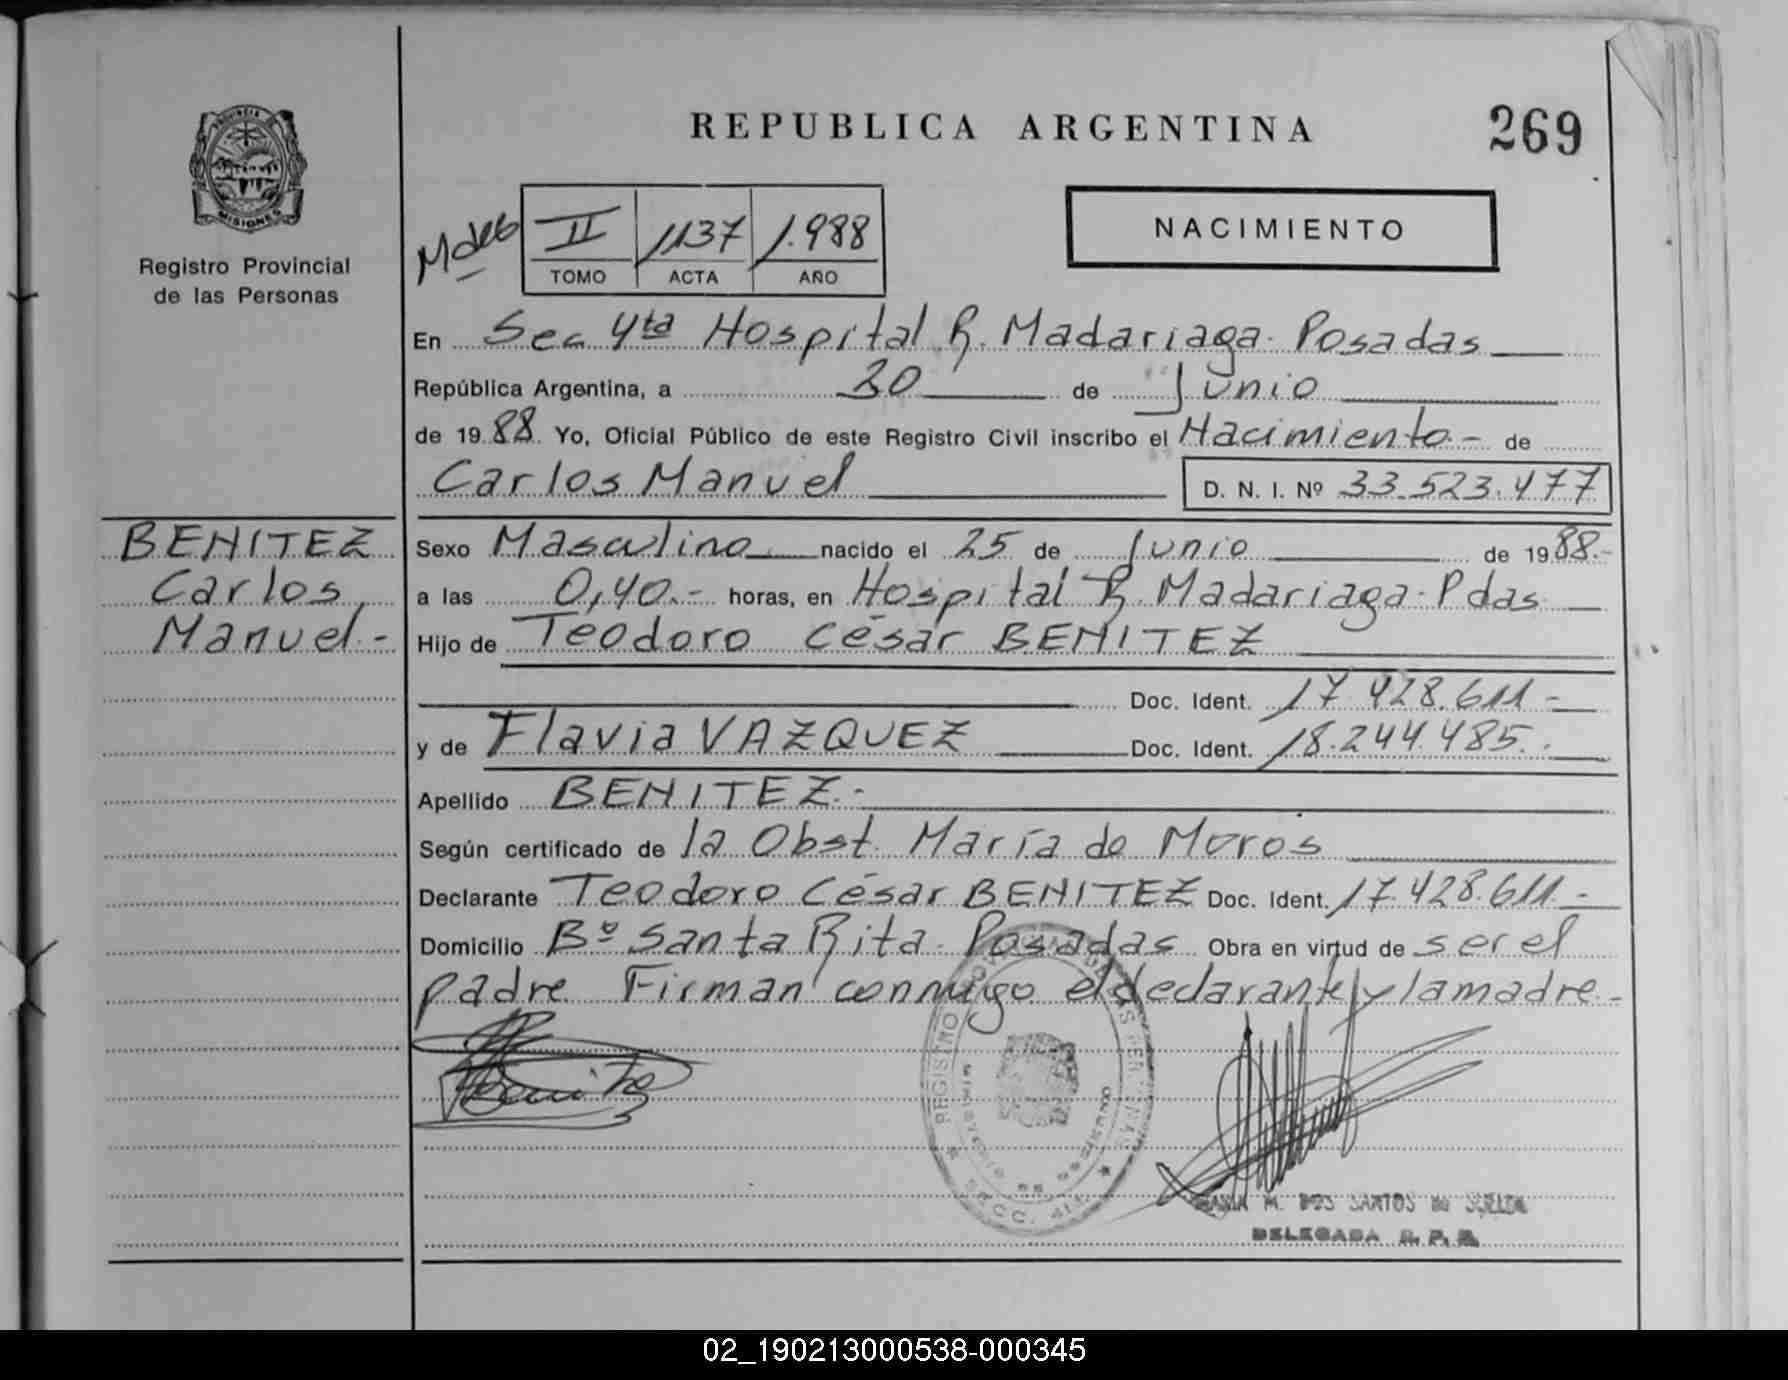 REPUBLICA ARGENTINA
269
PROVINCIA DE
MISIONES
Registro Provincial
de las Personas
II 1137 1.988
TOMO ACTA AÑO
NACIMIENTO
En Sec 4ta Hospital R. Madariaga- Posadas
República Argentina, a 30 de Junio
de 1988. Yo, Oficial Público de este Registro Civil inscribo el Nacimiento.- de
Carlos Manuel D. N. I. Nº 33.523.477
BENITEZ
Carlos
Manuel.-
Sexo Masculino nacido el 25 de Junio de 1988.-
a las 0,40.- horas, en Hospital R. Madariaga- Pdas
Hijo de Teodoro César BENITEZ
Doc. Ident. 17.428.611-
y de Flavia VAZQUEZ Doc. Ident. 18.244.485.-
Apellido BENITEZ.-
Según certificado de la Obst. María de Moros
Declarante Teodoro César BENITEZ Doc. Ident. 17.428.611.-
Domicilio Bº Santa Rita- Posadas Obra en virtud de ser el
padre Firman conmigo el declarante y la madre-
REGISTRO PROVINCIAL DE LAS PERSONAS
MINISTERIO DE GOBIERNO
SECC. 4ta.
M. DOS SANTOS DE
DELEGADA R. P. P.
02_190213000538-000345